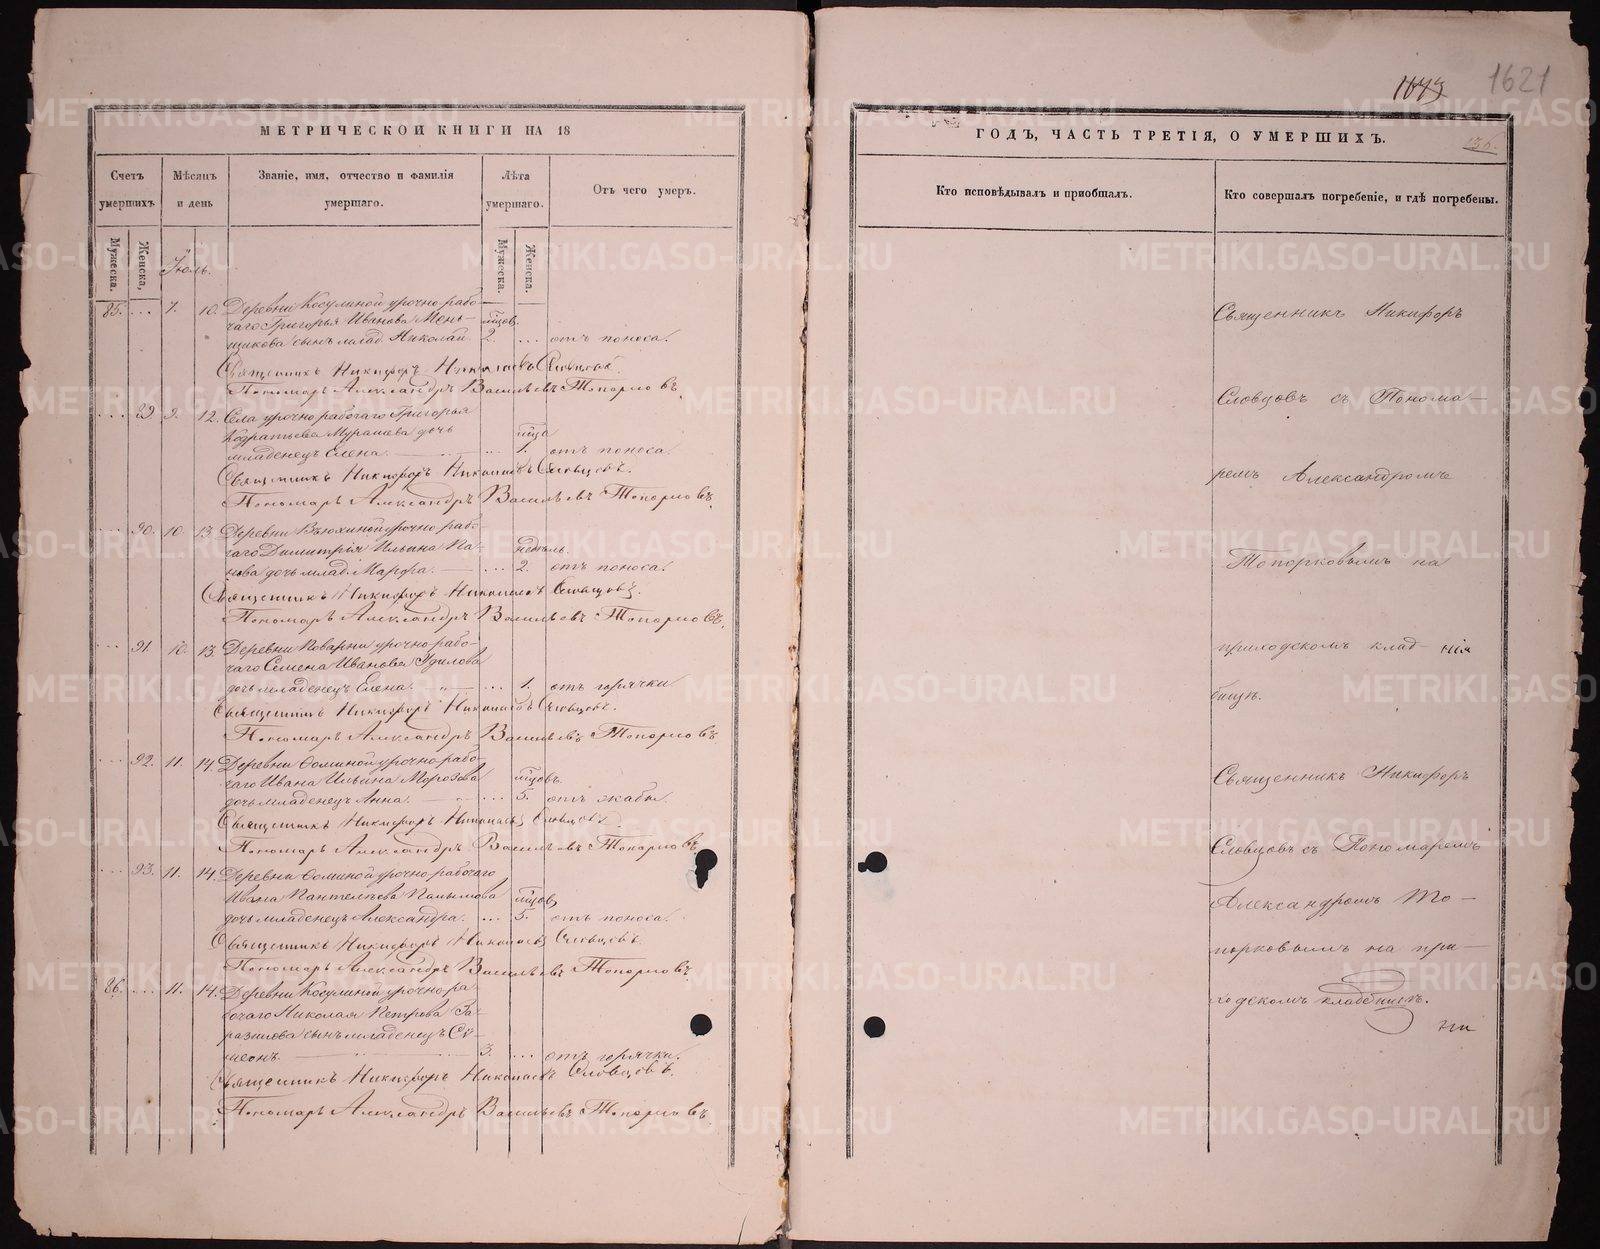 1673 1621
МЕТРИЧЕСКОЙ КНИГИ НА 18
Счетъ умершихъ
Мѣсяцъ и день
Званіе, имя, отчество и фамилія умершаго.
Лѣта умершаго.
Отъ чего умеръ.
Мужеска.
Женска,
Мужеска.
Женска.
Іюль.
85. ... 7. 10. Деревни Косулиной урочнорабо-
чаго Григорья Иванова Мень-
щикова сынъ млад. Николай 2. ... отъ поноса.
Священникъ Никифоръ Николаевъ Словцовъ.
Пономарь Александръ Васильевъ Топорковъ.
... 89 9. 12. Села урочнорабочаго Григорья
Мурашева дочь
младенецъ Елена. 1. отъ поноса.
Священникъ Никифоръ Николаевъ Словцовъ.
Пономарь Александръ Васильевъ Топорковъ.
... 90. 10. 13. Деревни Вьюхиной урочнорабо-
чаго Димитрія Ильина Па- недѣль.
нова дочь млад. Марфа. ... 2. отъ поноса.
Священникъ Никифоръ Николаевъ Словцовъ.
Пономарь Александръ Васильевъ Топорковъ.
... 91. 10. 13. Деревни Поварни урочнорабо-
чаго Семена Иванова
дочь младенецъ Елена. ... 1. отъ горячки
Священникъ Никифоръ Николаевъ Словцовъ.
Пономарь Александръ Васильевъ Топорковъ.
... 92. 11. 14. Деревни Ѳоминой урочнорабо-
чаго Ивана Ильина Морозова
дочь младенецъ Анна. ... 5. отъ жабы.
Священникъ Никифоръ Николаевъ Словцовъ.
Пономарь Александръ Васильевъ Топорковъ.
... 93. 11. 14. Деревни Ѳоминой урочнорабочаго
Ивана Пантелѣева
дочь младенецъ Александра. ... 5. отъ поноса.
Священникъ Никифоръ Николаевъ Словцовъ.
Пономарь Александръ Васильевъ Топорковъ.
86. ... 11. 14. Деревни Косулиной урочнора
бочаго Николая Петрова За-
сынъ младенецъ Си-
меонъ. 3. ... отъ горячки.
Священникъ Никифоръ Николаевъ Словцовъ.
Пономарь Александръ Васильевъ Топорковъ.
ГОДЪ, ЧАСТЬ ТРЕТІЯ, О УМЕРШИХЪ.
136.
Кто исповѣдывалъ и пріобщалъ.
Кто совершалъ погребеніе, и гдѣ погребены.
Священникъ Никифоръ
Словцовъ съ Понома-
ремъ Александромъ
Топорковымъ на
приходскомъ клад-
бищѣ.
Священникъ Никифоръ
Словцовъ съ Пономаремъ
Александромъ То-
порковымъ на при-
ходскомъ кладбищѣ.
METRIKI.GASO-URAL.RU